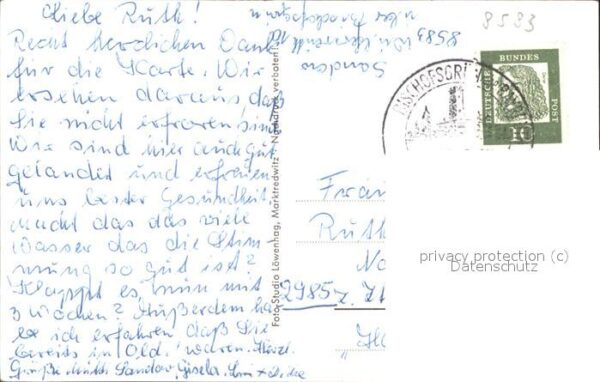 Liebe Ruth!
Recht herzlichen Dank
für die Karte. Wir
ersehen daraus daß
Sie nicht erfroren sind.
Wir sind hier auch gut
gelandet und erfreuen
uns bester Gesundheit.
Macht das das viele
Wasser das die Stim-
mung so gut ist?
Klappt es nun mit
3 Wochen? Außerdem ha-
be ich erfahren daß Sie
bereits in Old. waren. Herzl.
Grüße Sandor, Gisela
Sandor
8583
über
Foto-Studio Löwenhag, Marktredwitz - Nachdruck verboten
8583
BISCHOFSGRÜN
DEUTSCHE BUNDES POST
10
Frän
Ruth
No
2985
privacy protection (c)
Datenschutz